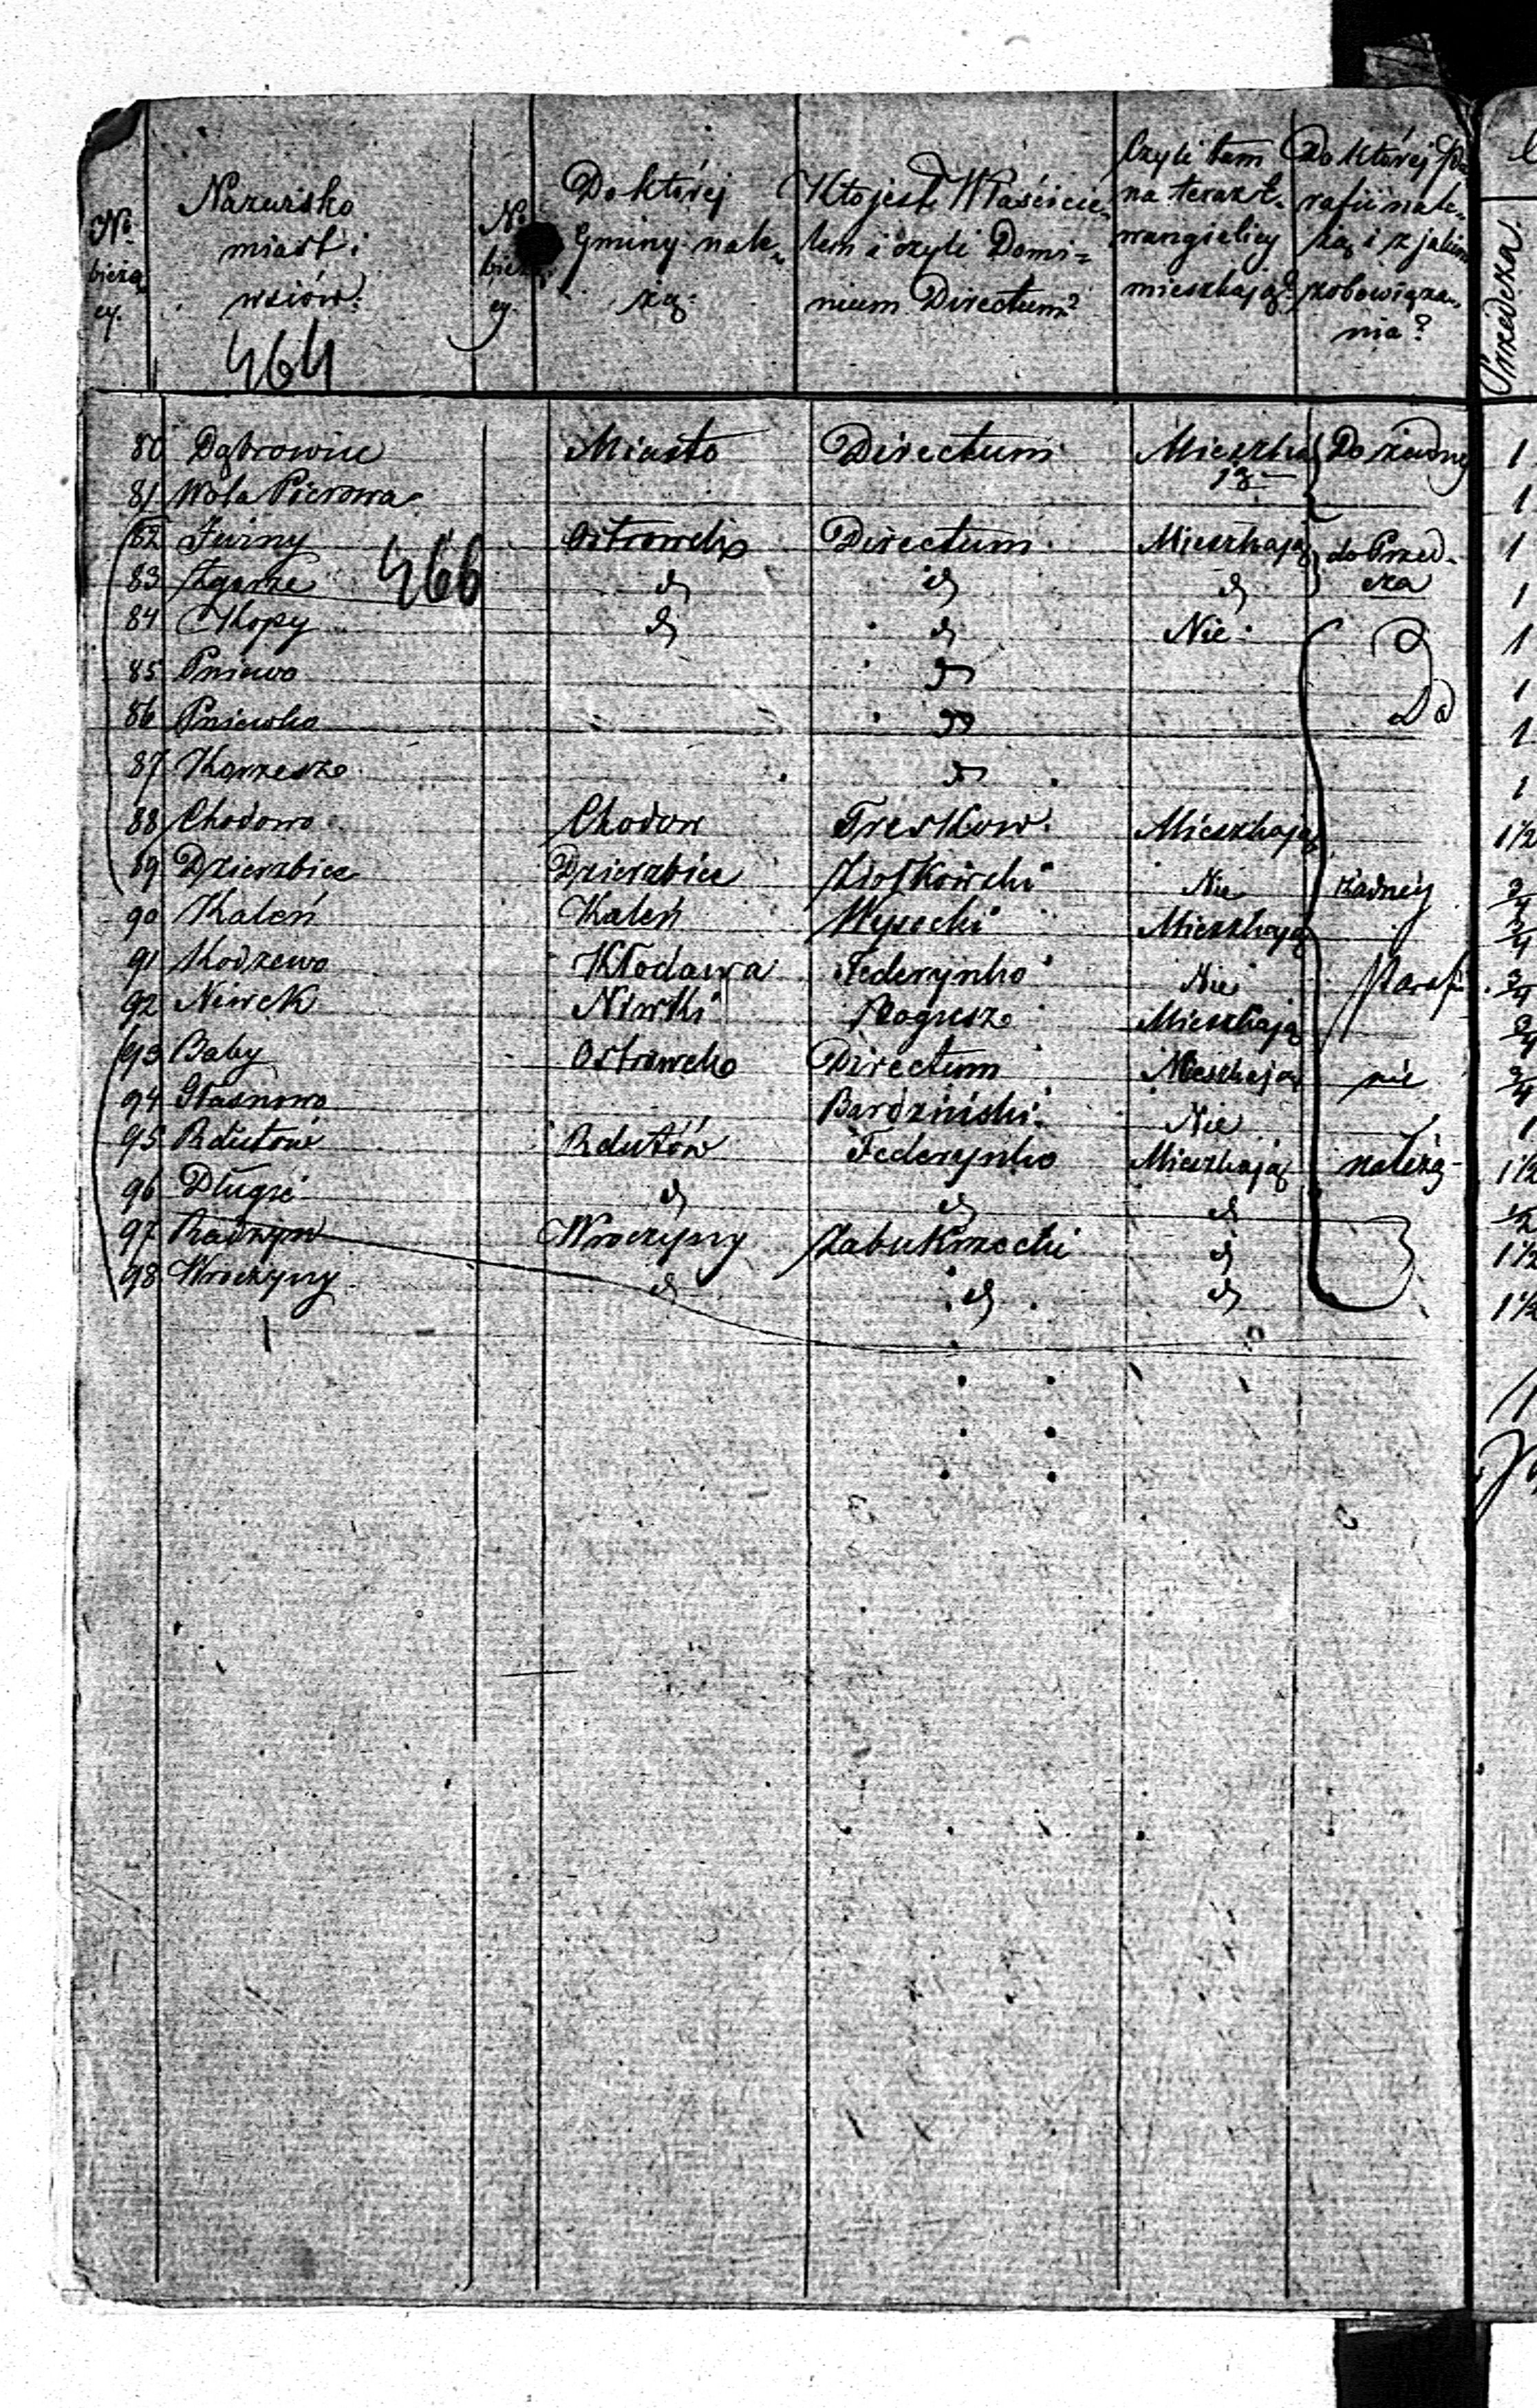 No bieżą cy.
Nazwisko miast i wsiów:
464
No bieżą cy.
Do której Gminy nale- żą:
Kto jest Właścicie- lem i czyli Domi= nium Directum?
Czyli tam na teraz E- wangielicy mieszkają?
Do której Pa- rafii nale- żą i z jakim zobowiąza- nia?
Przedecza.
80 Dąbrowice Miasto Directum Mieszka Do żadney 1
81 Wola Pierowa ją 1
82 Jwiny Ostrowska Directum Mieszkają do Przed- 1
83 Zgorze 466 d d d cza 1
84 Kopy d d Nie 1
85 Pniewo 1
86 Pniewko Do 1
87 Korzesze 1
88 Chodowo Chodow Treskow Mieszkają 1 1/2
89 Dzierzbice Dzierzbice Ziołkowski Nie żadney 3/4
90 Kaleń Kaleń Wysocki Mieszkają 3/4
91 Kodzewo Kłodawa Federynko Nie Parafii 3/4
92 Niwek Niwki Rogusze Mieszkają 3/4
93 Baby Ostrowcko Directum Mieszkają nie 3/4
94 Głasnowo Bardziński Nie 1
95 Rdutow Rdutów Federynko Mieszkają należą 1 1/2
96 Długie d d d 1/2
97 Raszyn Wroczyny Zabukrzecki d 1 1/2
98 Wroczyny d d d 1 1/2